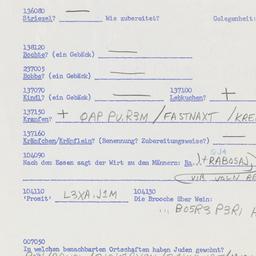 136080
Striezel? — Wie zubereitet? Gelegenheit:
138120
Bochte? (ein Gebäck) —
237003
Bobbe? (ein Gebäck) —
137070 137100
Kindl? (ein Gebäck) — Lebkuchen? +
137150
Krapfen? + QAP PU.R3M / FASTNAXT / KRE
137160
Kräpfchen/Kräpflein? (Benennung? Zubereitungsweise?) —
104090
Nach dem Essen sagt der Wirt zu den Männern: Ra. ) + RABOSAJ
VIR VOLN BE
104110 104130
'Prosit' L3XA.J1M Die Broche über Wein:
... BO5R3 P3RI H
007050
In welchen benachbarten Ortschaften haben Juden gewohnt?